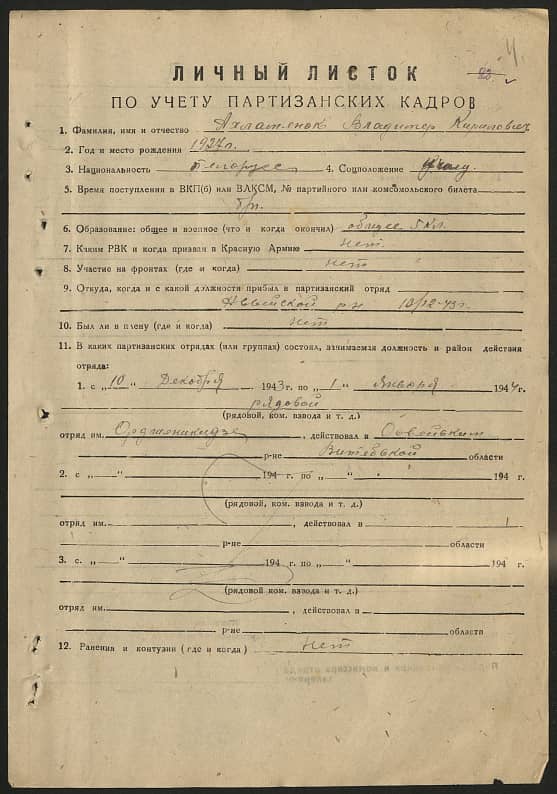 4.
ЛИЧНЫЙ ЛИСТОК
23
ПО УЧЕТУ ПАРТИЗАНСКИХ КАДРОВ
1. Фамилия, имя и отчество Ахлатенок Владимир Кирилович
2. Год и место рождения 1927 г.
3. Национальность Белорусс 4. Соцположение учащ.
5. Время поступления в ВКП(б) или ВЛКСМ, № партийного или комсомольского билета
б/п.
6. Образование: общее и военное (что и когда окончил) общее 5 кл.
7. Каким РВК и когда призван в Красную Армию нет.
8. Участие на фронтах (где и когда) нет
9. Откуда, когда и с какой должности прибыл в партизанский отряд
р-н 10/12-43 г.
10. Был ли в плену (где и когда) нет
11. В каких партизанских отрядах (или группах) состоял, занимаемая должность и район действия
отряда:
1. с „10" Декабря 1943 г. по „1" Января 1944 г.
рядовой
(рядовой, ком. взвода и т. д.)
отряд им. Орджоникидзе, действовал в
р-не Витебской области
2. с „ " 194 г. по „ " 194 г.
(рядовой, ком. взвода и т. д.)
отряд им. , действовал в
р-не области
3. с „ " 194 г. по „ " 194 г.
(рядовой ком. взвода и т. д.)
отряд им. , действовал в
р-не области
12. Ранения и контузии (где и когда) нет